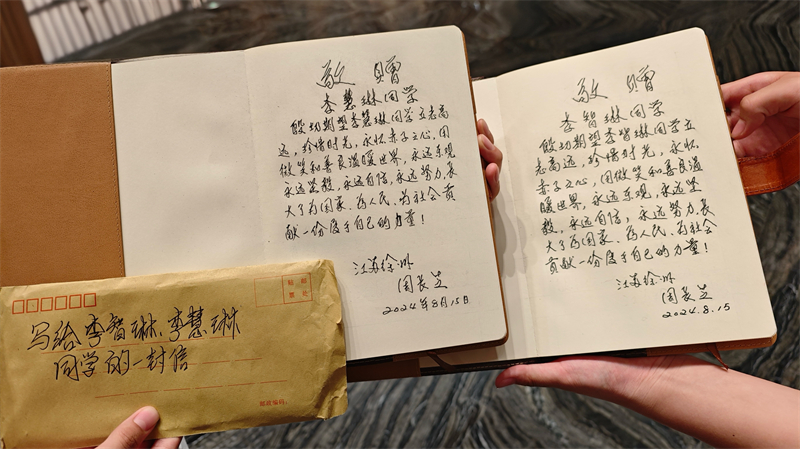 敬赠
李慧琳同学
殷切期望李慧琳同学立志高
远，珍惜时光，永怀赤子之心，用
微笑和善良温暖世界，永远乐观
永远坚毅，永远自信，永远努力，长
大了为国家、为人民、为社会贡
献一份属于自己的力量！
江苏徐州
周长芝
2024年8月15日
敬赠
李智琳同学
殷切期望李智琳同学立
志高远，珍惜时光，永怀
赤子之心，用微笑和善良温
暖世界，永远乐观，永远坚
毅，永远自信，永远努力，长
大了为国家、为人民、为社会
贡献一份属于自己的力量！
江苏徐州
周长芝
2024.8.15
贴邮
票处
写给李智琳、李慧琳
同学的一封信
邮政编码：